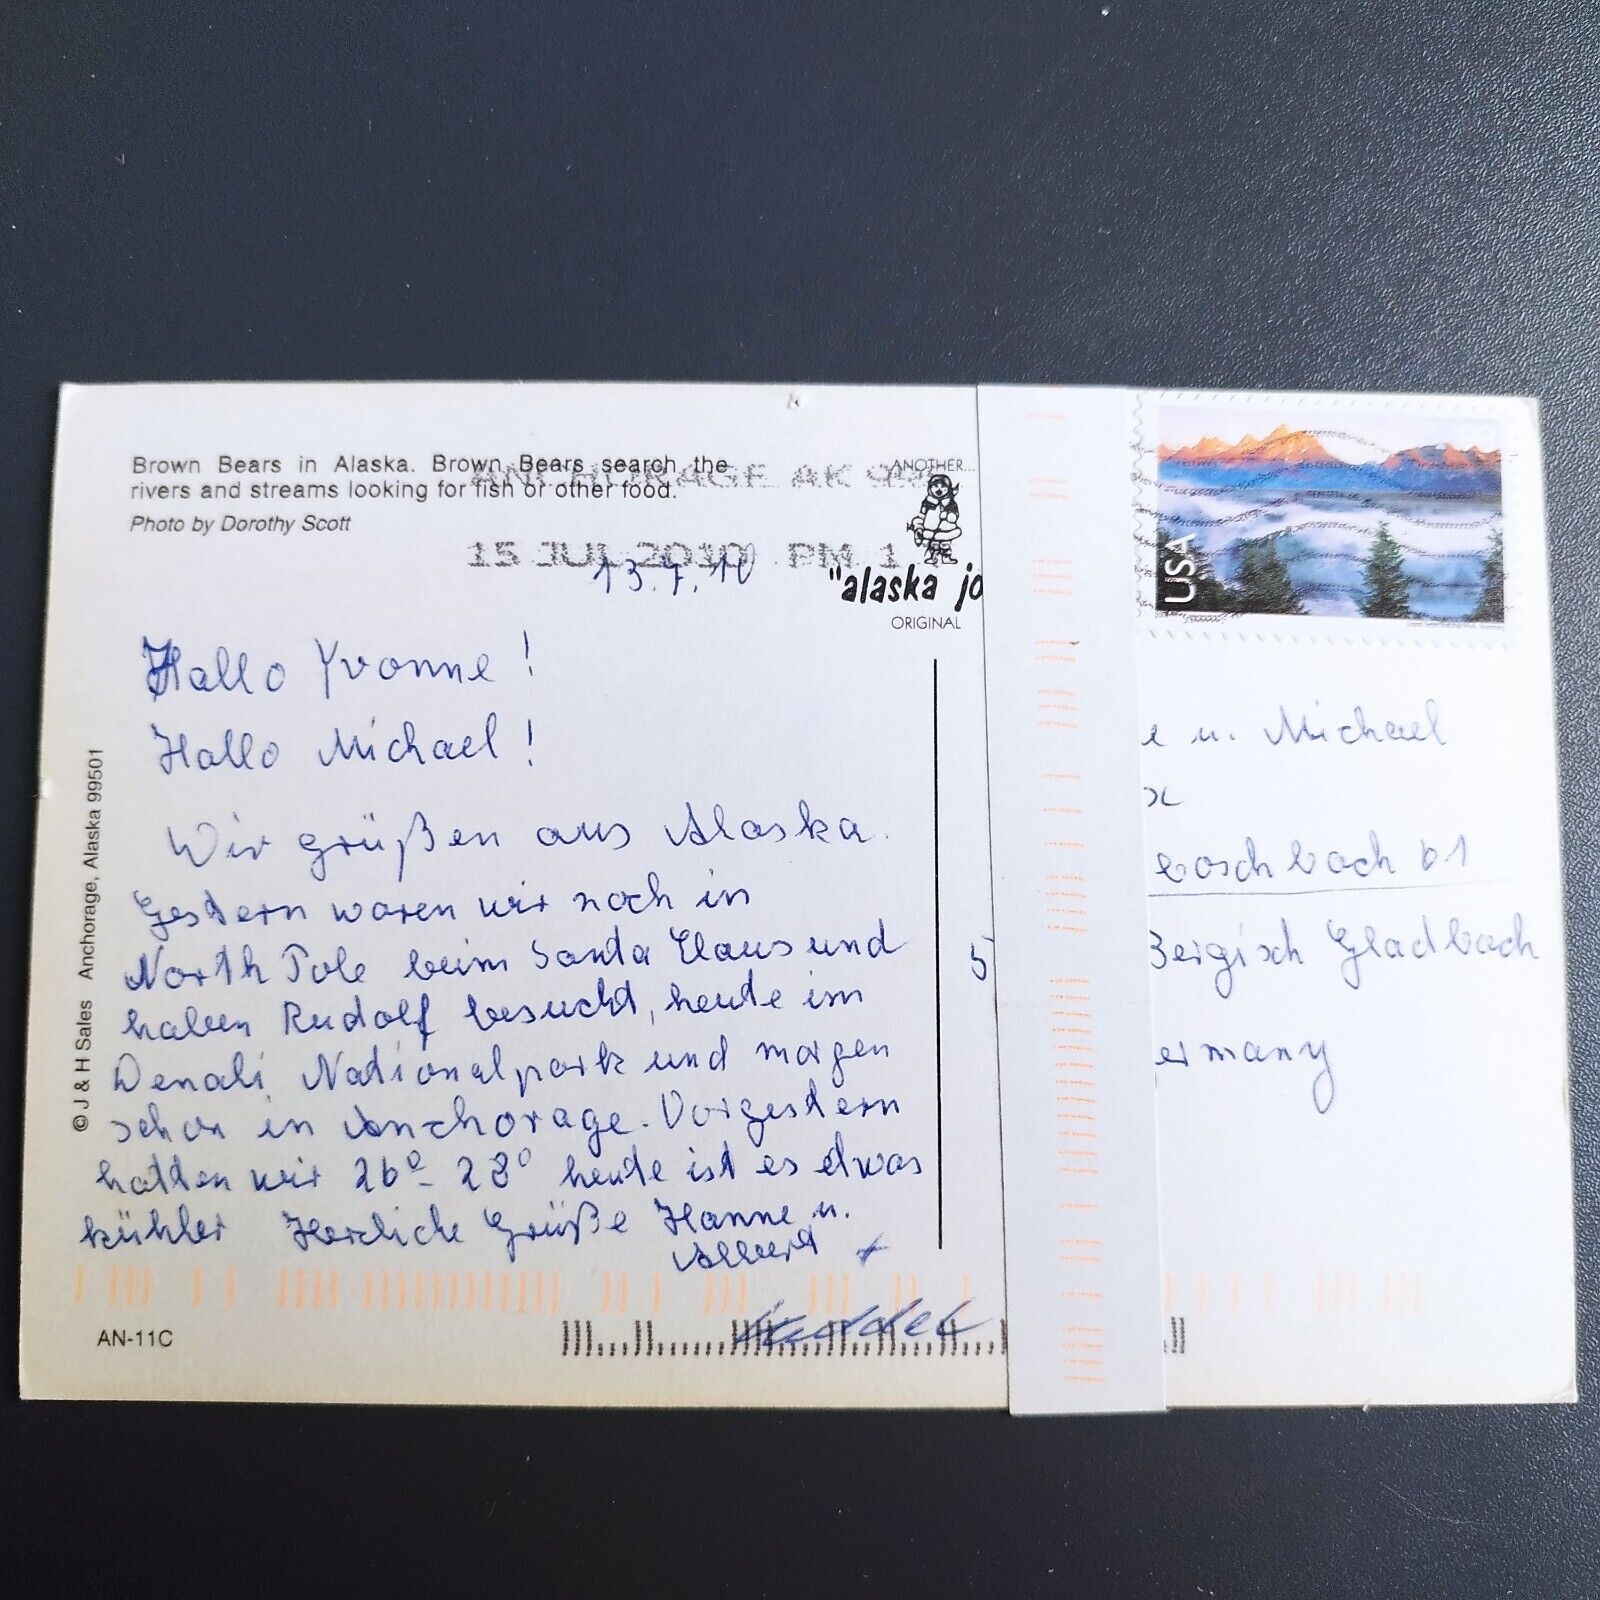 Brown Bears in Alaska. Brown Bears search the
rivers and streams looking for fish or other food.
Photo by Dorothy Scott
ANCHORAGE AK 99
15 JUL 2010 PM 1
ANOTHER...
"alaska jo
ORIGINAL
13.7.10
Hallo Yvonne!
Hallo Michael!
Wir grüßen aus Alaska.
Gestern waren wir noch in
North Pole beim Santa Claus und
haben Rudolf besucht, heute im
Denali Nationalpark und morgen
schon in Anchorage. Vorgestern
hatten wir 26° - 28° heute ist es etwas
kühler Herzliche Grüße Hanne u.
Albert +
© J & H Sales Anchorage, Alaska 99501
AN-11C
USA
e u. Michael
x
boschbach 61
5
Bergisch Gladbach
ermany